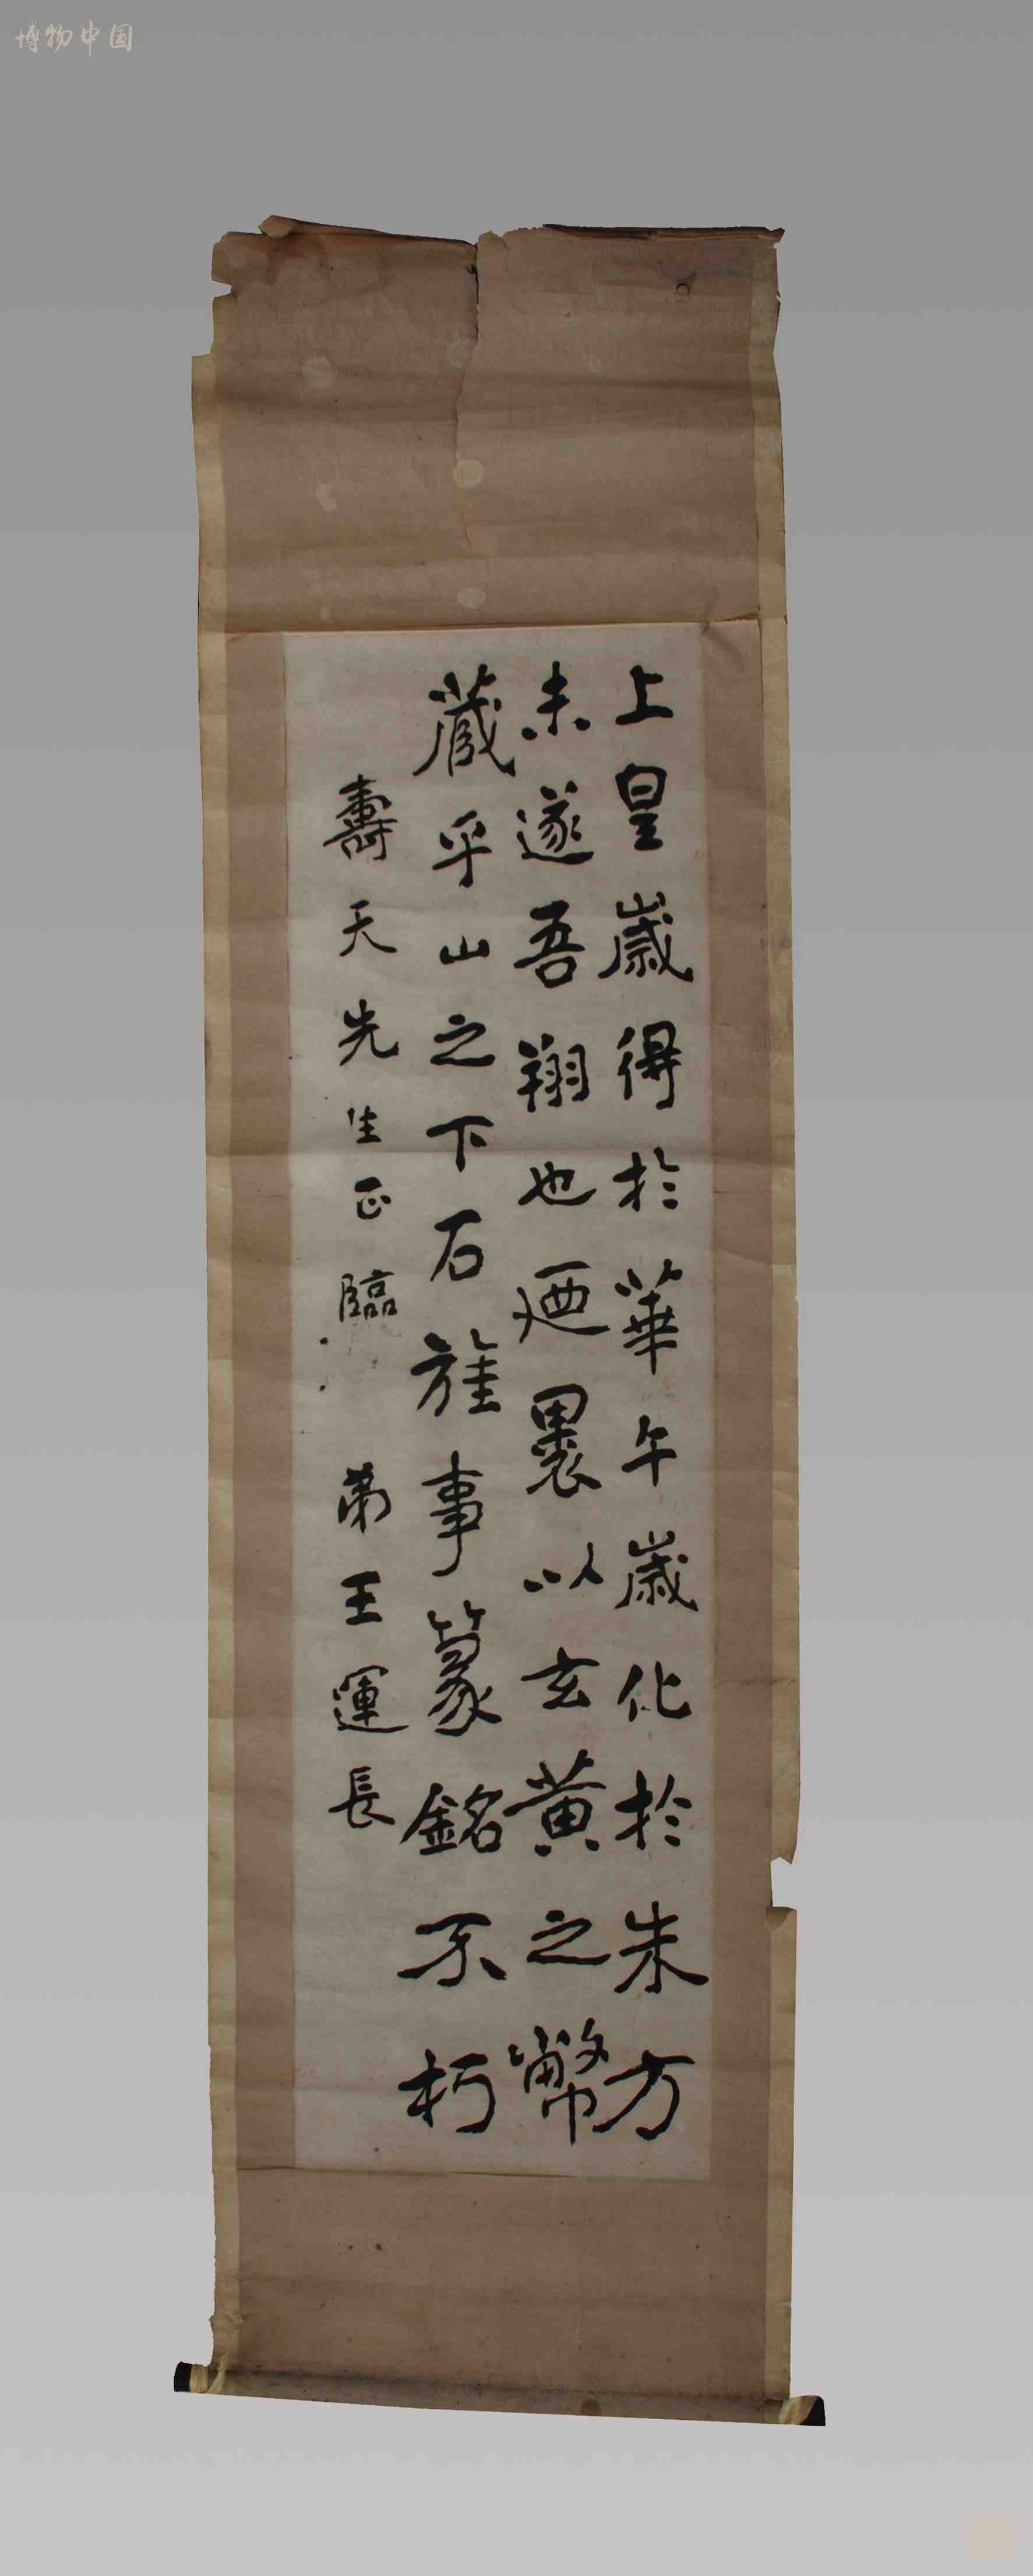 博物中国
上皇歲得於華午歲化於朱方
未遂吾翔也迺裹以玄黄之幣
藏乎山之下石旌事篆銘不朽
壽天先生正臨
弟王運長